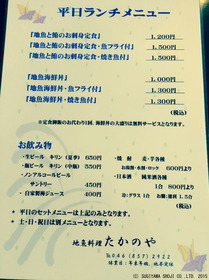 平日ランチメニュー
「地魚と鮪のお刺身定食」 1,200円
「地魚と鮪のお刺身定食・魚フライ付」 1,500円
「地魚と鮪のお刺身定食・焼き魚付」 1,500円
「地魚海鮮丼」 1,000円
「地魚海鮮丼・魚フライ付」 1,300円
「地魚海鮮丼・焼き魚付」 1,300円
(税込)
※定食御飯のお代わり1回、海鮮丼の大盛りは無料サービスとなります。
お飲み物
・生ビール キリン(夏季) 650円
・瓶ビール キリン(中瓶) 550円
・ノンアルコールビール
サントリー 450円
・自家製梅ジュース 400円
・焼酎 麦・芋各種
・日本酒 純米酒各種
1合 800円より
(税込)
・平日のセットメニューは上記のみとなります。
・土・日・祝日は別メニューとなります。
地魚料理 たかのや
℡ 046(837)2922
(C) SUGIYAMA SHOJI CO., LTD. 2015